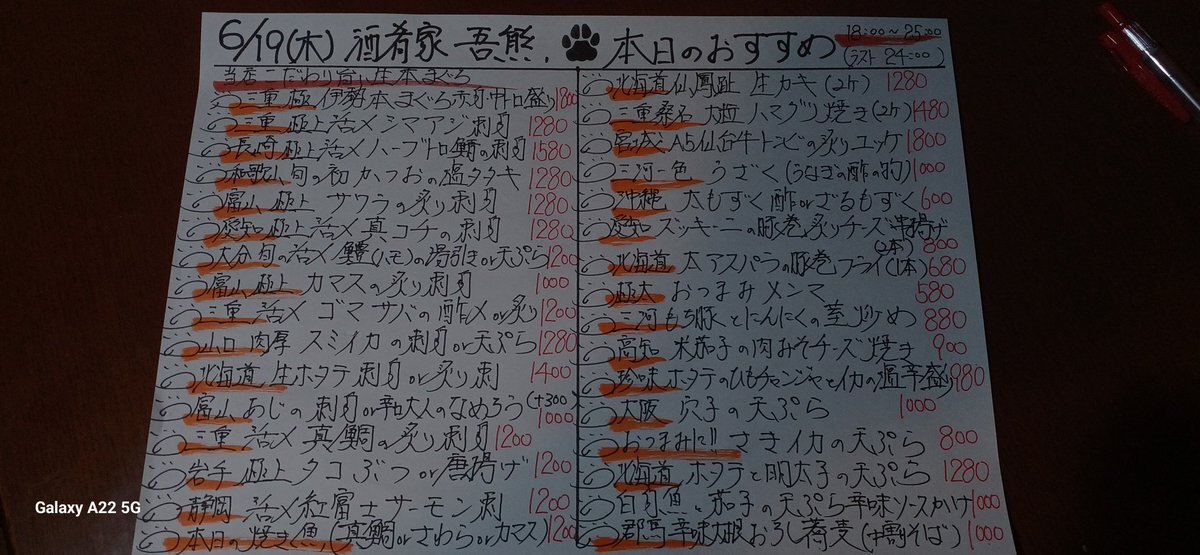 6/19(木) 酒肴家 吾熊. 本日のおすすめ 18:00~25:00
(ラスト 24:00)
当店こだわり旨い生本まぐろ
三重 極 伊勢本まぐろ赤身中トロ盛り 1800
三重 極上活〆シマアジ刺身 1280
長崎 極上活〆ハーブトロ鯖の刺身 1580
和歌山 旬の初かつおの塩タタキ 1280
富山 極上 サワラの炙り刺身 1280
愛知 極上活〆真コチの刺身 1280
大分 旬の活〆鱧(ハモ)の湯引きor天ぷら 1200
富山 極上 カマスの炙り刺身 1000
三重 活〆 ゴマサバの酢〆or炙り 1200
山口 肉厚 スミイカの刺身or天ぷら 1280
北海道 生ホタテ刺身or炙り刺 1400
富山 あじの刺身or辛口大人のなめろう(+300 1000
三重 活〆 真鯛の炙り刺身 1200
岩手 極上 タコぶつor唐揚げ 1200
静岡 活〆紅富士サーモン刺 1200
本日の焼き魚(真鯛orさわらorカマス) 1200
北海道仙鳳趾 生カキ(2ケ) 1280
三重桑名 大 ハマグリ焼き(2ケ) 1480
宮城 A5仙台牛トンビの炙りユッケ 1800
三河一色 うざく(うなぎの酢の物) 1000
沖縄 太もずく酢orざるもずく 600
愛知 ズッキーニの豚巻炙りチーズ串揚げ
(2本) 800
北海道 太アスパラの豚巻フライ(1本) 680
極太 おつまみメンマ 580
三河もち豚とにんにくの茎炒め 880
高知 米茄子の肉みそチーズ焼き 900
珍味ホタテのひもチャンジャとイカの 辛盛り 980
大阪 穴子の天ぷら 1000
おつまみに!! さきイカの天ぷら 800
北海道 ホタテと明太子の天ぷら 1280
白身魚と茄子の天ぷら辛味ソースかけ 1000
群馬辛味大根おろし蕎麦(十割そば) 1000
Galaxy A22 5G